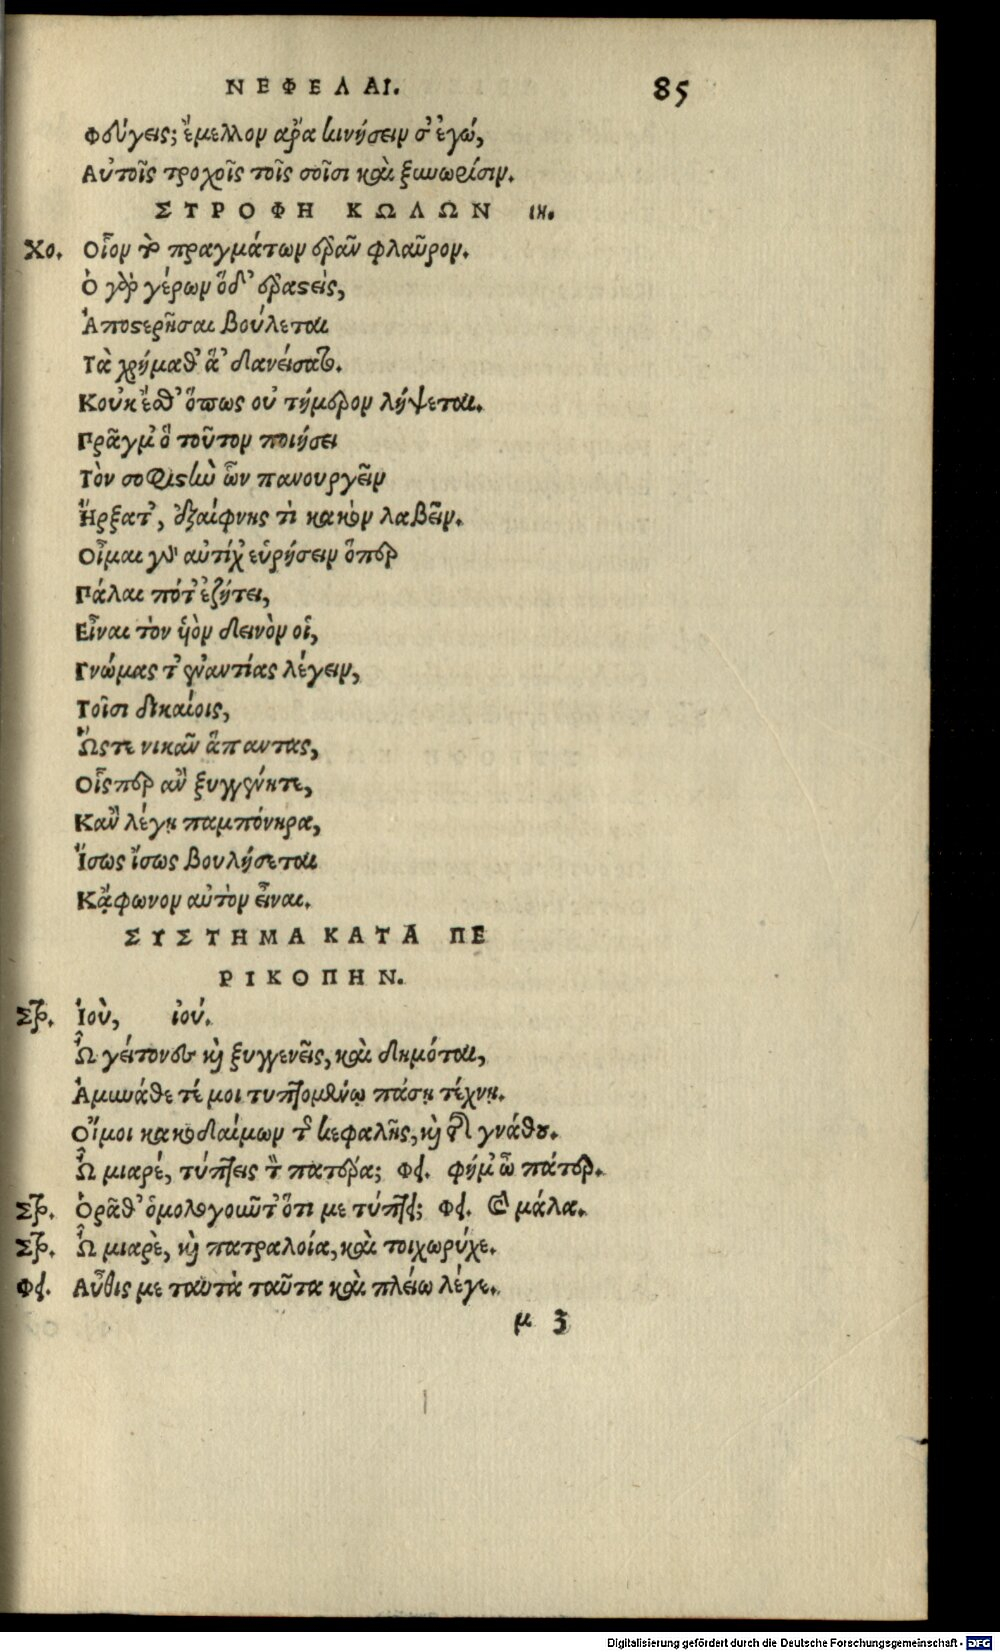 ΝΕΦΕΛΑΙ. 85
Φεύγεις; ἔμελλον ἄρα κινήσειν σ' ἐγώ,
Αὐτοῖς τροχοῖς τοῖς σοῖσι καὶ ξυνωρίσιν.
ΣΤΡΟΦΗ ΚΩΛΩΝ ιη.
Χο. Οἷον τὸ πραγμάτων ἐρᾶν φλαῦρον.
Ὁ γὰρ γέρων ὅδ' ἐρασθεὶς,
Ἀποστερῆσαι βούλεται
Τὰ χρήμαθ' ἃ 'δανείσατο.
Κοὐκ ἔσθ' ὅπως οὐ τήμερον λήψεται.
Πρᾶγμ' ὃ τοῦτον ποιήσει
Τὸν σοφιστὴν ὧν πανουργεῖν
Ἤρξατ', ἐξαίφνης τὶ κακὸν λαβεῖν.
Οἶμαι γὰρ αὐτίχ' εὑρήσειν ὅπερ
Πάλαι πότ' ἐζήτει,
Εἶναι τὸν υἱὸν δεινὸν οἱ,
Γνώμας τ' ἐναντίας λέγειν,
Τοῖσι δικαίοις,
Ὥστε νικᾶν ἅπαντας,
Οἷσπερ ἂν ξυγγένητε,
Κἂν λέγῃ παμπόνηρα,
Ἴσως ἴσως βουλήσεται
Κᾄφωνον αὐτὸν εἶναι.
ΣΥΣΤΗΜΑ ΚΑΤΑ ΠΕ
ΡΙΚΟΠΗΝ.
Στρ. Ἰοὺ, ἰού.
Ὦ γείτονες καὶ ξυγγενεῖς, καὶ δημόται,
Ἀμυνάθετέ μοι τυπτομένῳ πάσῃ τέχνῃ.
Οἴμοι κακοδαίμων τῆς κεφαλῆς, καὶ τῆς γνάθου.
Ὦ μιαρέ, τύπτεις τὸν πατέρα; Φει. φήμ' ὦ πάτερ.
Στρ. Ὁρᾶθ' ὁμολογοῦντ' ὅτι με τύπτει; Φει. καὶ μάλα.
Στρ. Ὦ μιαρὲ, καὶ πατραλοία, καὶ τοιχωρύχε.
Φει. Αὖθις με ταυτὰ ταῦτα καὶ πλείω λέγε.
μ 3
Digitalisierung gefördert durch die Deutsche Forschungsgemeinschaft - DFG